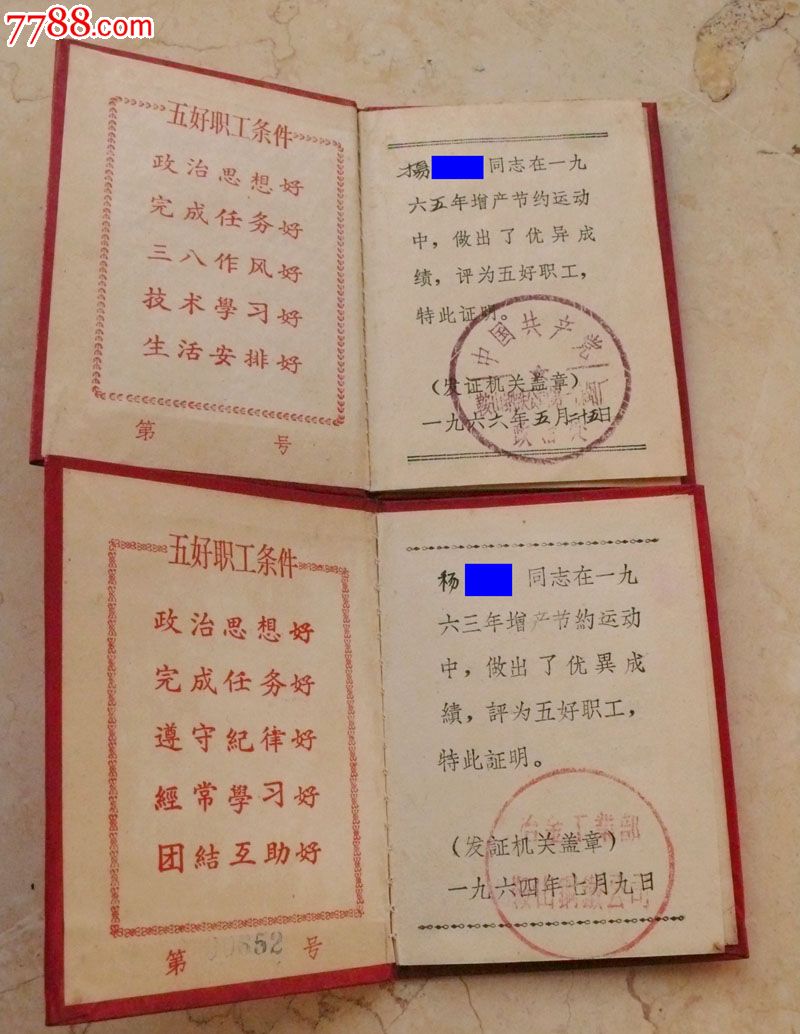 7788.com
五好职工条件
政治思想好
完成任务好
三八作风好
技术學习好
生活安排好
第 号
楊 同志在一九
六五年增产节约运动
中，做出了优异成
绩，评为五好职工，
特此证明。
中国共产党
（发证机关盖章）
一九六六年五月廿五日
五好职工条件
政治思想好
完成任务好
遵守紀律好
經常學习好
团結互助好
第 号
杨 同志在一九
六三年增产节約运动
中，做出了优異成
績，評为五好职工，
特此証明。
冶金工業部
（发証机关盖章）
鞍山鋼鐵公司
一九六四年七月九日